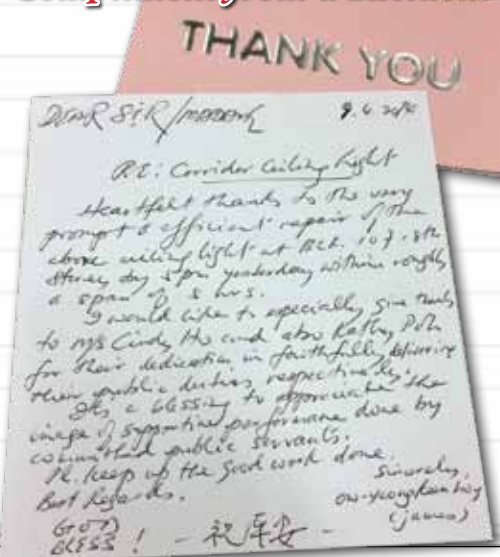 THANK YOU
DEAR SIR/MADAM
RE: Corridor Ceiling Light
Heartfelt thanks to the very
prompt & efficient repair of the
above ceiling light at BLK. 107, 8th
storey by 5pm yesterday within roughly
a span of 5 hrs.
I would like to especially give thanks
to Ms Cindy Ho and also Kathy Poh
for their dedication in faithfully
their public duties respectively.
Its a blessing to appreciate the
image of supportive performance done by
committed public servants.
Pl. keep up the good work done.
Best Regards.
Sincerely,
(james)
GOD
BLESS ! - 祝平安 -